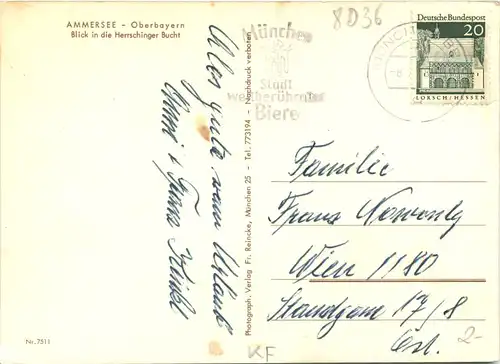 AMMERSEE – Oberbayern
Blick in die Herrschinger Bucht
8D36
München
Stadt
weltberühmter
Biere
Deutsche Bundespost
20
LORSCH/HESSEN
Alles gute vom Urlaub
Photograph. Verlag Fr. Reincke, München 25 – Tel. 773194 – Nachdruck verboten
Familie
Franz
Wien 1180
17/8
Öst.
2-
Nr. 7511
KF